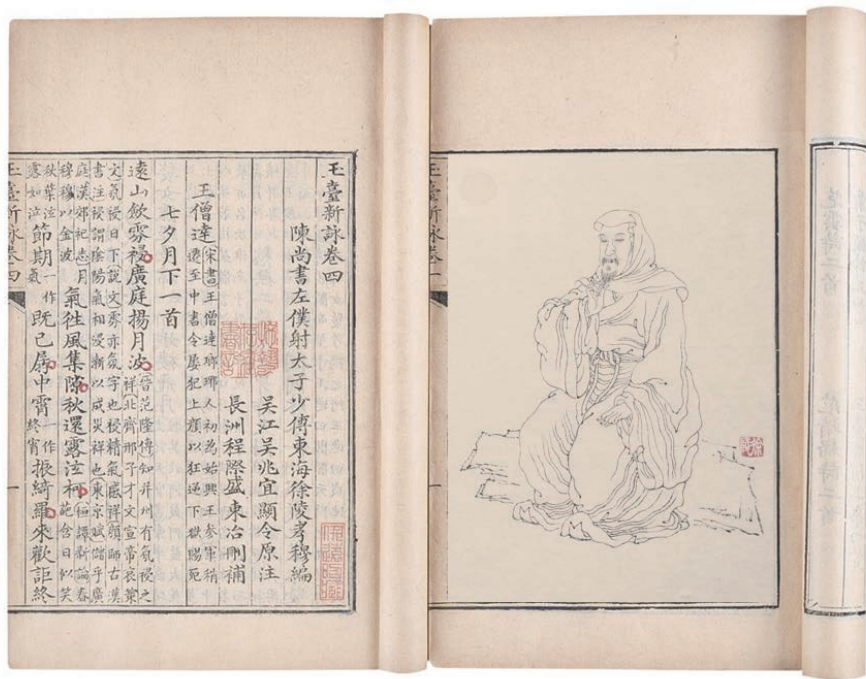 玉臺新詠卷一
玉臺新詠卷四
陳尚書左僕射太子少傅東海徐陵孝穆編
吳江吳兆宜顯令原注
長洲程際盛東冶刪補
王僧達 宋書王僧達瑯琊人初為始興王參軍稍遷至中書令屢犯上顏以狂逆下獄賜死
七夕月下一首
遠山飲雰祲廣庭揚月波 晉范隆傳知并州有氛祲之祥北齊邢子才文宣帝哀策
文氛祲日下說文雰亦氛字也祲精氣感祥顏師古漢書注祲謂陰陽氣相浸漸以成災祥也東京賦儲乎廣
庭漢郊祀志月穆穆以金波 氣徃風集隙秋還露泣柯 桓譚新論春葩含日似笑
秋葉泣露如泣 節期 一作氣 既已孱中霄 一作終宵 振綺羅來歡詎終
玉臺新詠卷四
一